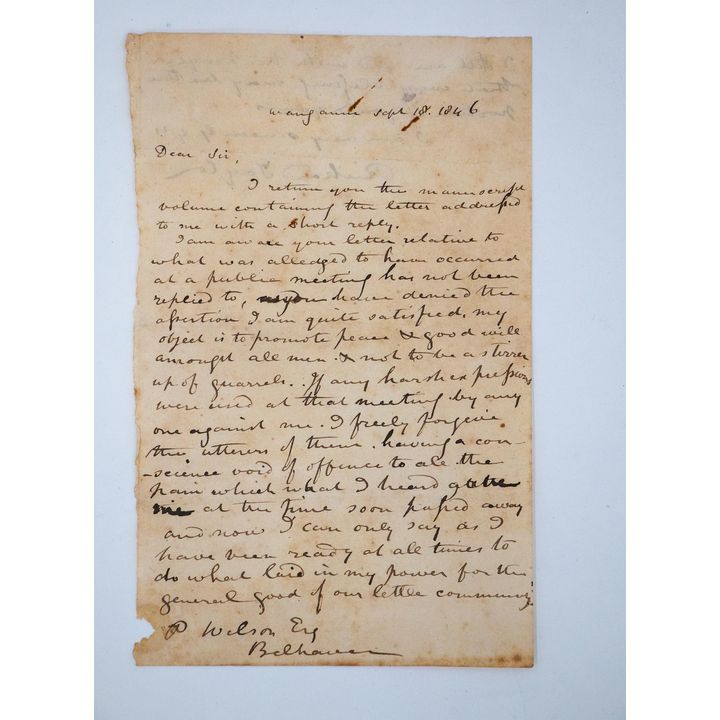 Wanganui Sept 18. 1846
Dear Sir,
I return you the manuscript
volume containing the letter addressed
to me with a short reply.
I am aware your letter relative to
what was alledged to have occurred
at a public meeting has not been
replied to, as you have denied the
assertion I am quite satisfied. my
object is to promote peace & good will
amongst all men. & not to be a stirrer
up of quarrels.. If any harsh expressions
were used at that meeting by any
one against me. I freely forgive
the utterers of them. having a con-
-science void of offence to all the
pain which what I heard gave
me at the time soon passed away
and now I can only say as I
have been ready at all times to
do what laid in my power for the
general good of our little community
P Wilson Esq
Belhaven